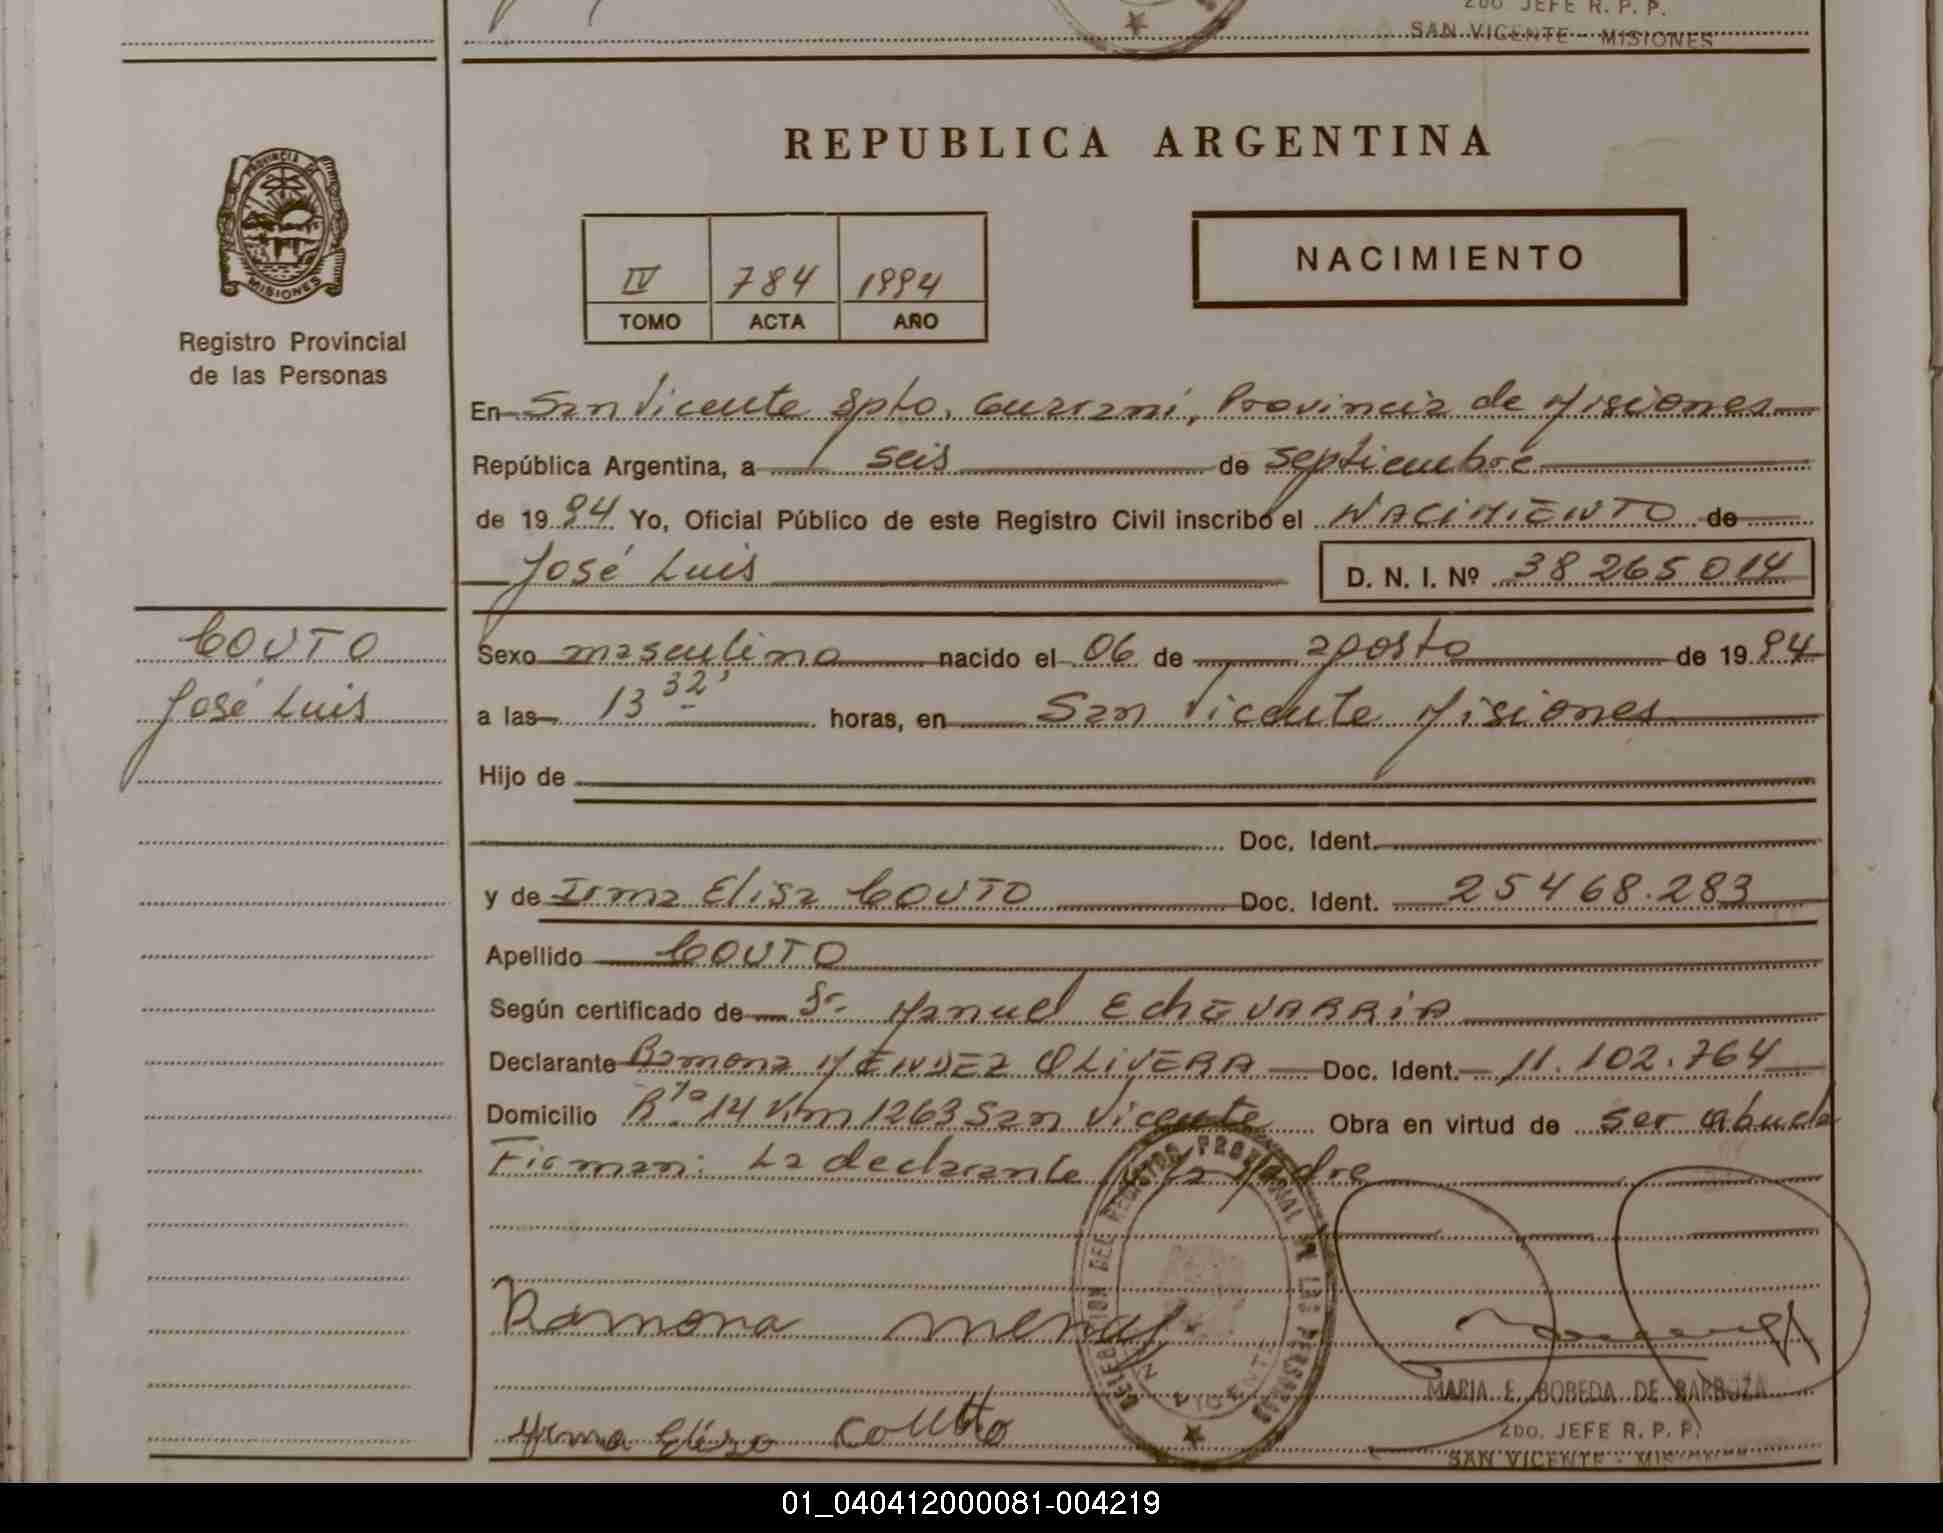 2do JEFE R. P. P.
SAN VICENTE - MISIONES
PROVINCIA DE
MISIONES
Registro Provincial
de las Personas
REPUBLICA ARGENTINA
IV 784 1994
TOMO ACTA AÑO
NACIMIENTO
En San Vicente Dpto. Guaraní, Provincia de Misiones
República Argentina, a seis de septiembre
de 1994 Yo, Oficial Público de este Registro Civil inscribo el NACIMIENTO de
José Luis D. N. I. Nº 38 265 014
COUTO
José Luis
Sexo masculino nacido el 06 de agosto de 1994
a las 13 32' horas, en San Vicente Misiones
Hijo de
Doc. Ident.
y de Irma Elisa COUTO Doc. Ident. 25468.283
Apellido COUTO
Según certificado de Dr. Manuel EchEVARRiA
Declarante Ramona MENDEZ OLiVERA Doc. Ident. 11.102.764
Domicilio Rta 14 Km 1263 San Vicente Obra en virtud de ser abuela
Firman: La declarante y la Madre
DELEGACION DEL REGISTRO PROVINCIAL DE LAS PERSONAS
SAN VICENTE
Ramona
Yrma Eliza Coutto
MARIA E. BOBEDA DE BARBOZA
2DO. JEFE R. P. P.
SAN VICENTE - MISIONES
01_040412000081-004219